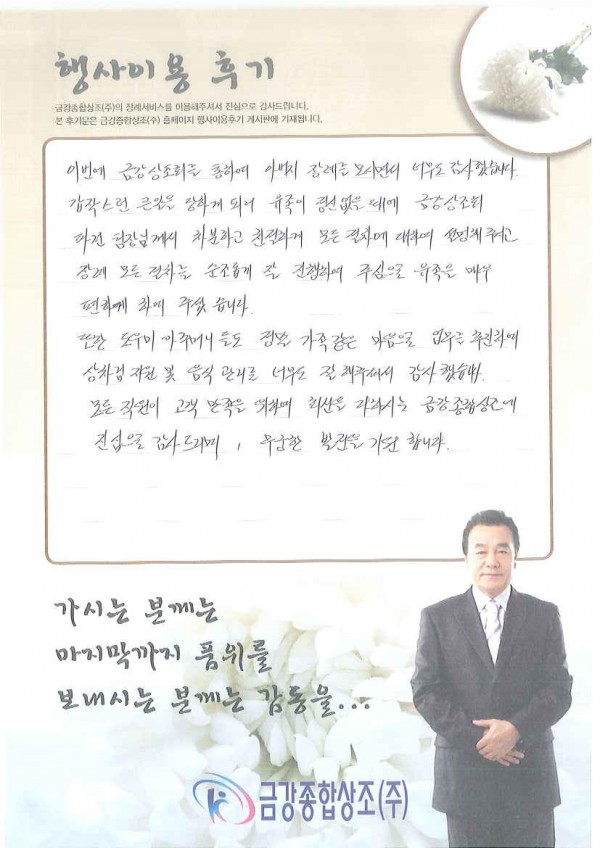 행사이용 후기
금강종합상조(주)의 장례서비스를 이용해주셔서 진심으로 감사드립니다.
본 후기문은 금강종합상조(주) 홈페이지 행사이용후기 게시판에 기재됩니다.
이번에 금강상조회를 통하여 아버지 장례를 모시면서 너무도 감사했습니다.
갑작스런 큰일을 당하게 되어 유족이 경선없을 때에 금강상조회
파견 팀장님께서 차분하고 친절하게 모든 절차에 대하여 설명해 주시고
장례 모든 절차를 순조롭게 잘 진행하여 주심으로 유족을 매우
편하게 하여 주셨습니다.
또한 도우미 아주머니들도 정말 가족같은 마음으로 업무를 추진하여
상차림 지원 및 음식 관리를 너무도 잘 해주셔서 감사했습니다.
모든 직원이 고객 만족을 위하여 최선을 다하시는 금강종합상조에
진심으로 감사드리며, 무궁한 발전을 기원합니다.
가시는 분께는
마지막까지 품위를
보내시는 분께는 감동을...
금강종합상조(주)